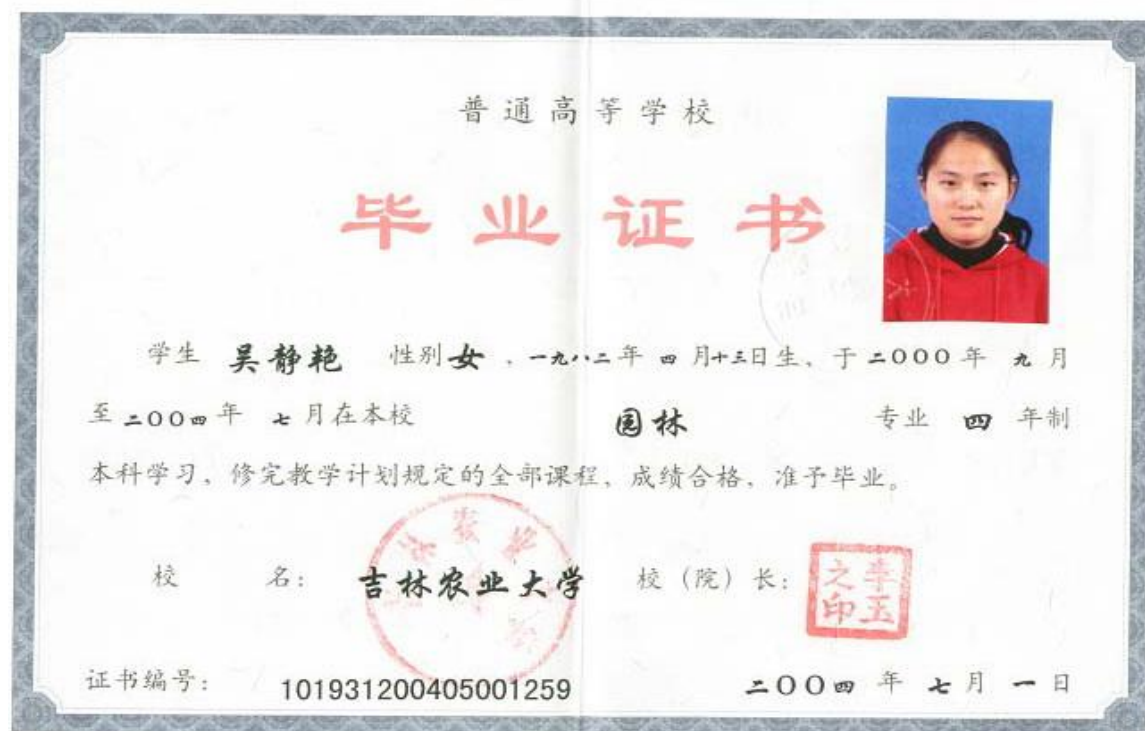 普通高等学校
毕业证书
学生 吴静艳 性别 女，一九八二年 四 月十三日生、于 二〇〇〇 年 九 月
至 二〇〇四 年 七 月在本校 园林 专业 四 年制
本科学习、修完教学计划规定的全部课程、成绩合格，准予毕业。
校 名： 吉林农业大学 校（院）长：
李玉之印
证书编号： 101931200405001259 二〇〇四 年 七 月 一 日